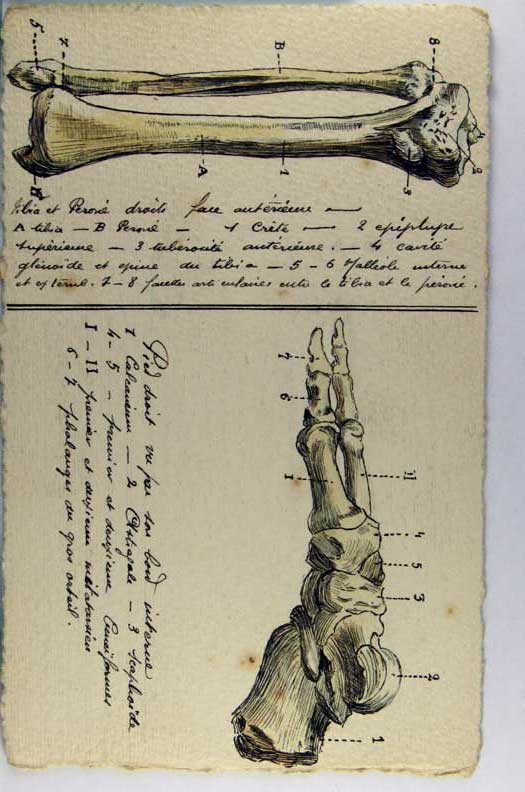 5 7 B 8
A 1 3 2
4
tibia et Peroné droits face antérieure —
A tibia — B Peroné — 1 Crête — 2 épiphyse
supérieure — 3 tuberosité antérieure. — 4 cavité
glénoïde et epine du tibia — 5 - 6 Malléole interne
et externe. 7 - 8 facettes articulaires entre le tibia et le peroné.
Pied droit vu par son bord interne
1 Calcaneum — 2 Astragale — 3 Scaphoïde
4 - 5 — premier et deuxieme Cunéiformes
I - II premier et deuxieme métatarsien
6 - 7 phalanges du gros orteil.
7
6
I II
4
5
3
2
1